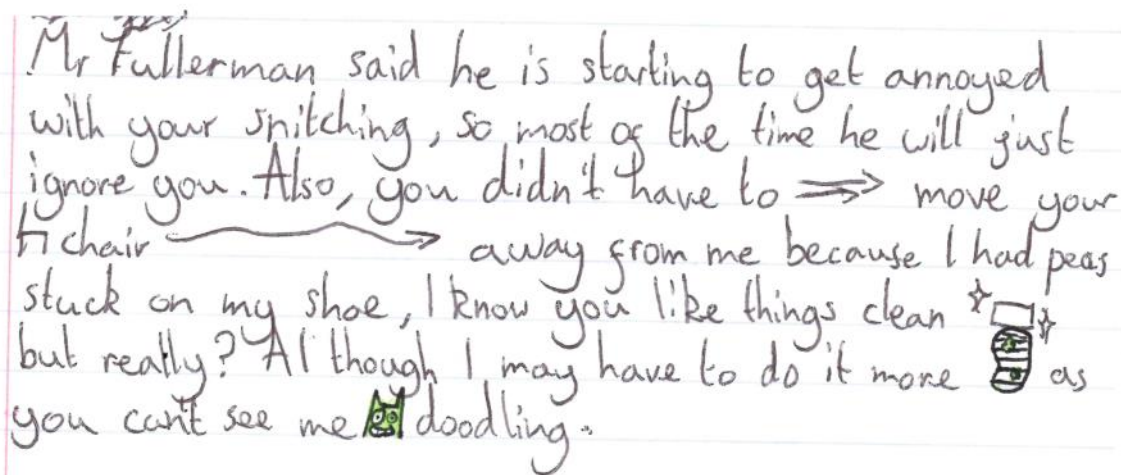 Mr Fullerman said he is starting to get annoyed
with your snitching, so most of the time he will just
ignore you. Also, you didn't have to move your
chair away from me because I had peas
stuck on my shoe, I know you like things clean
but really? Although I may have to do it more as
you can't see me doodling.